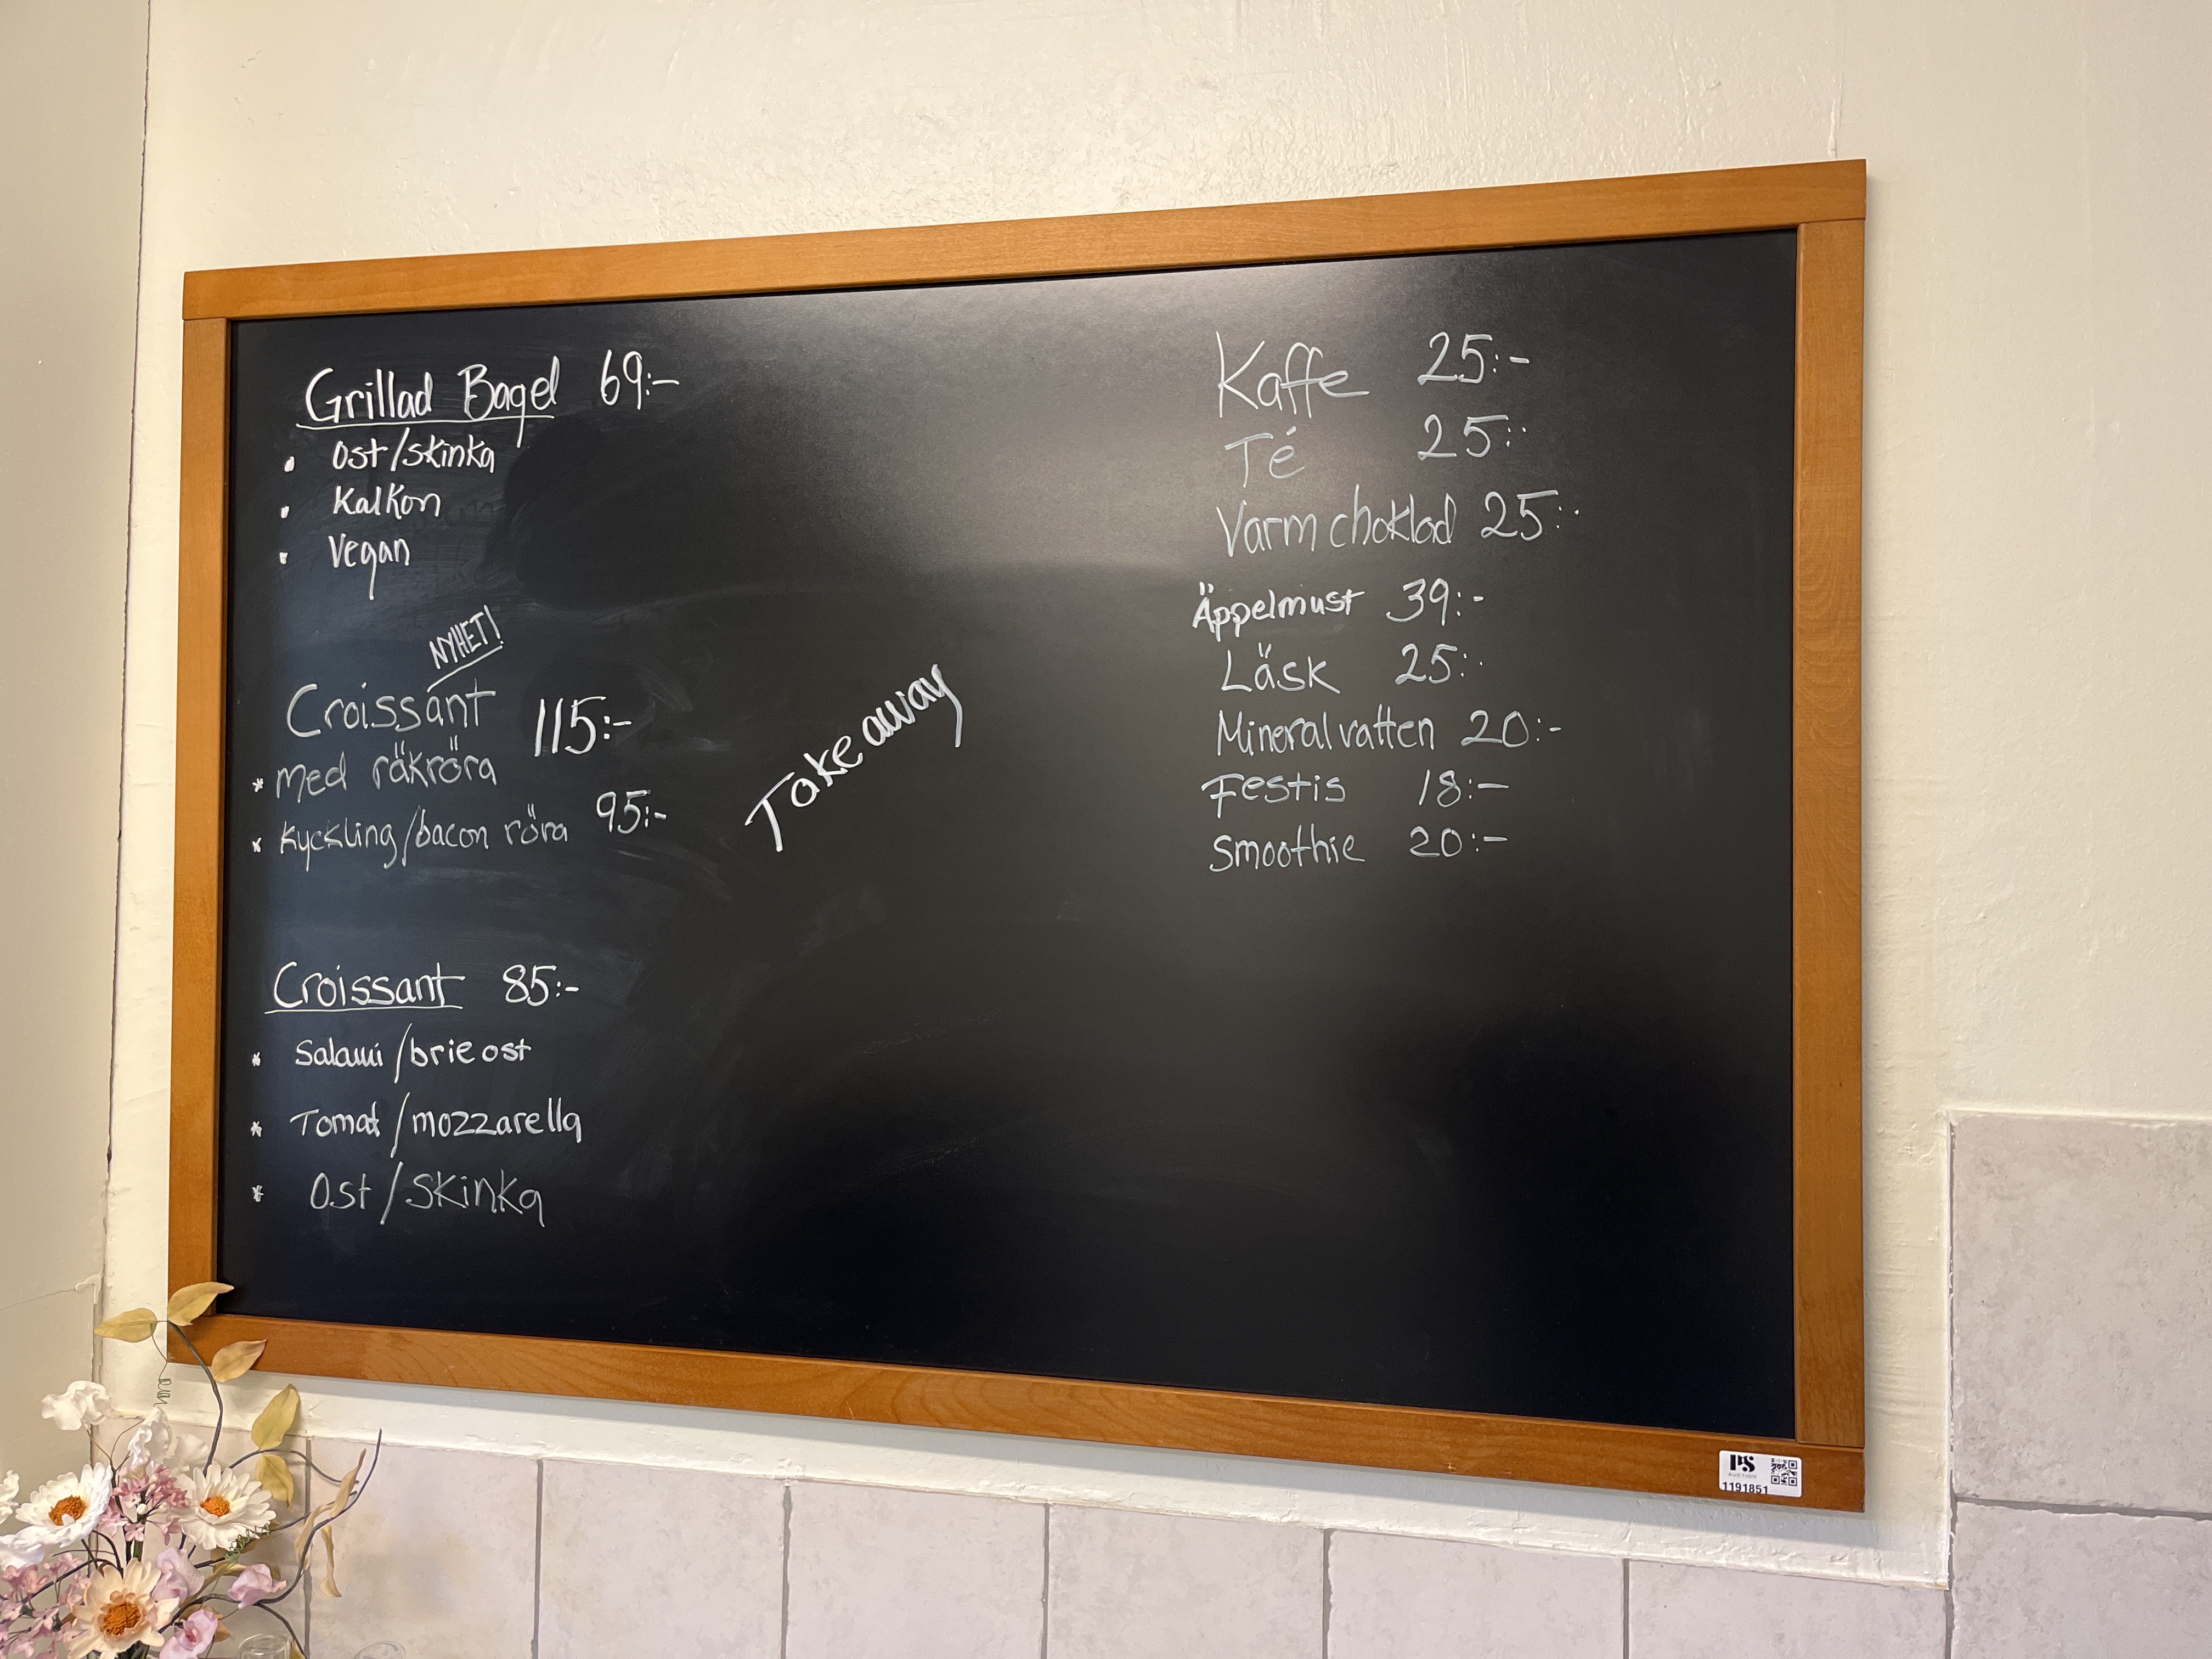 Grillad Bagel 69:-
• Ost/skinka
• Kalkon
• Vegan
NYHET!
Croissant 115:-
* med räkröra
* Kyckling/bacon röra 95:-
Croissant 85:-
* Salami/brie ost
* Tomat/mozzarella
* Ost/skinka
Take away
Kaffe 25:-
Té 25:-
Varm choklad 25:-
Äppelmust 39:-
Läsk 25:-
Mineralvatten 20:-
Festis 18:-
Smoothie 20:-
PS
AUCTION
1191851